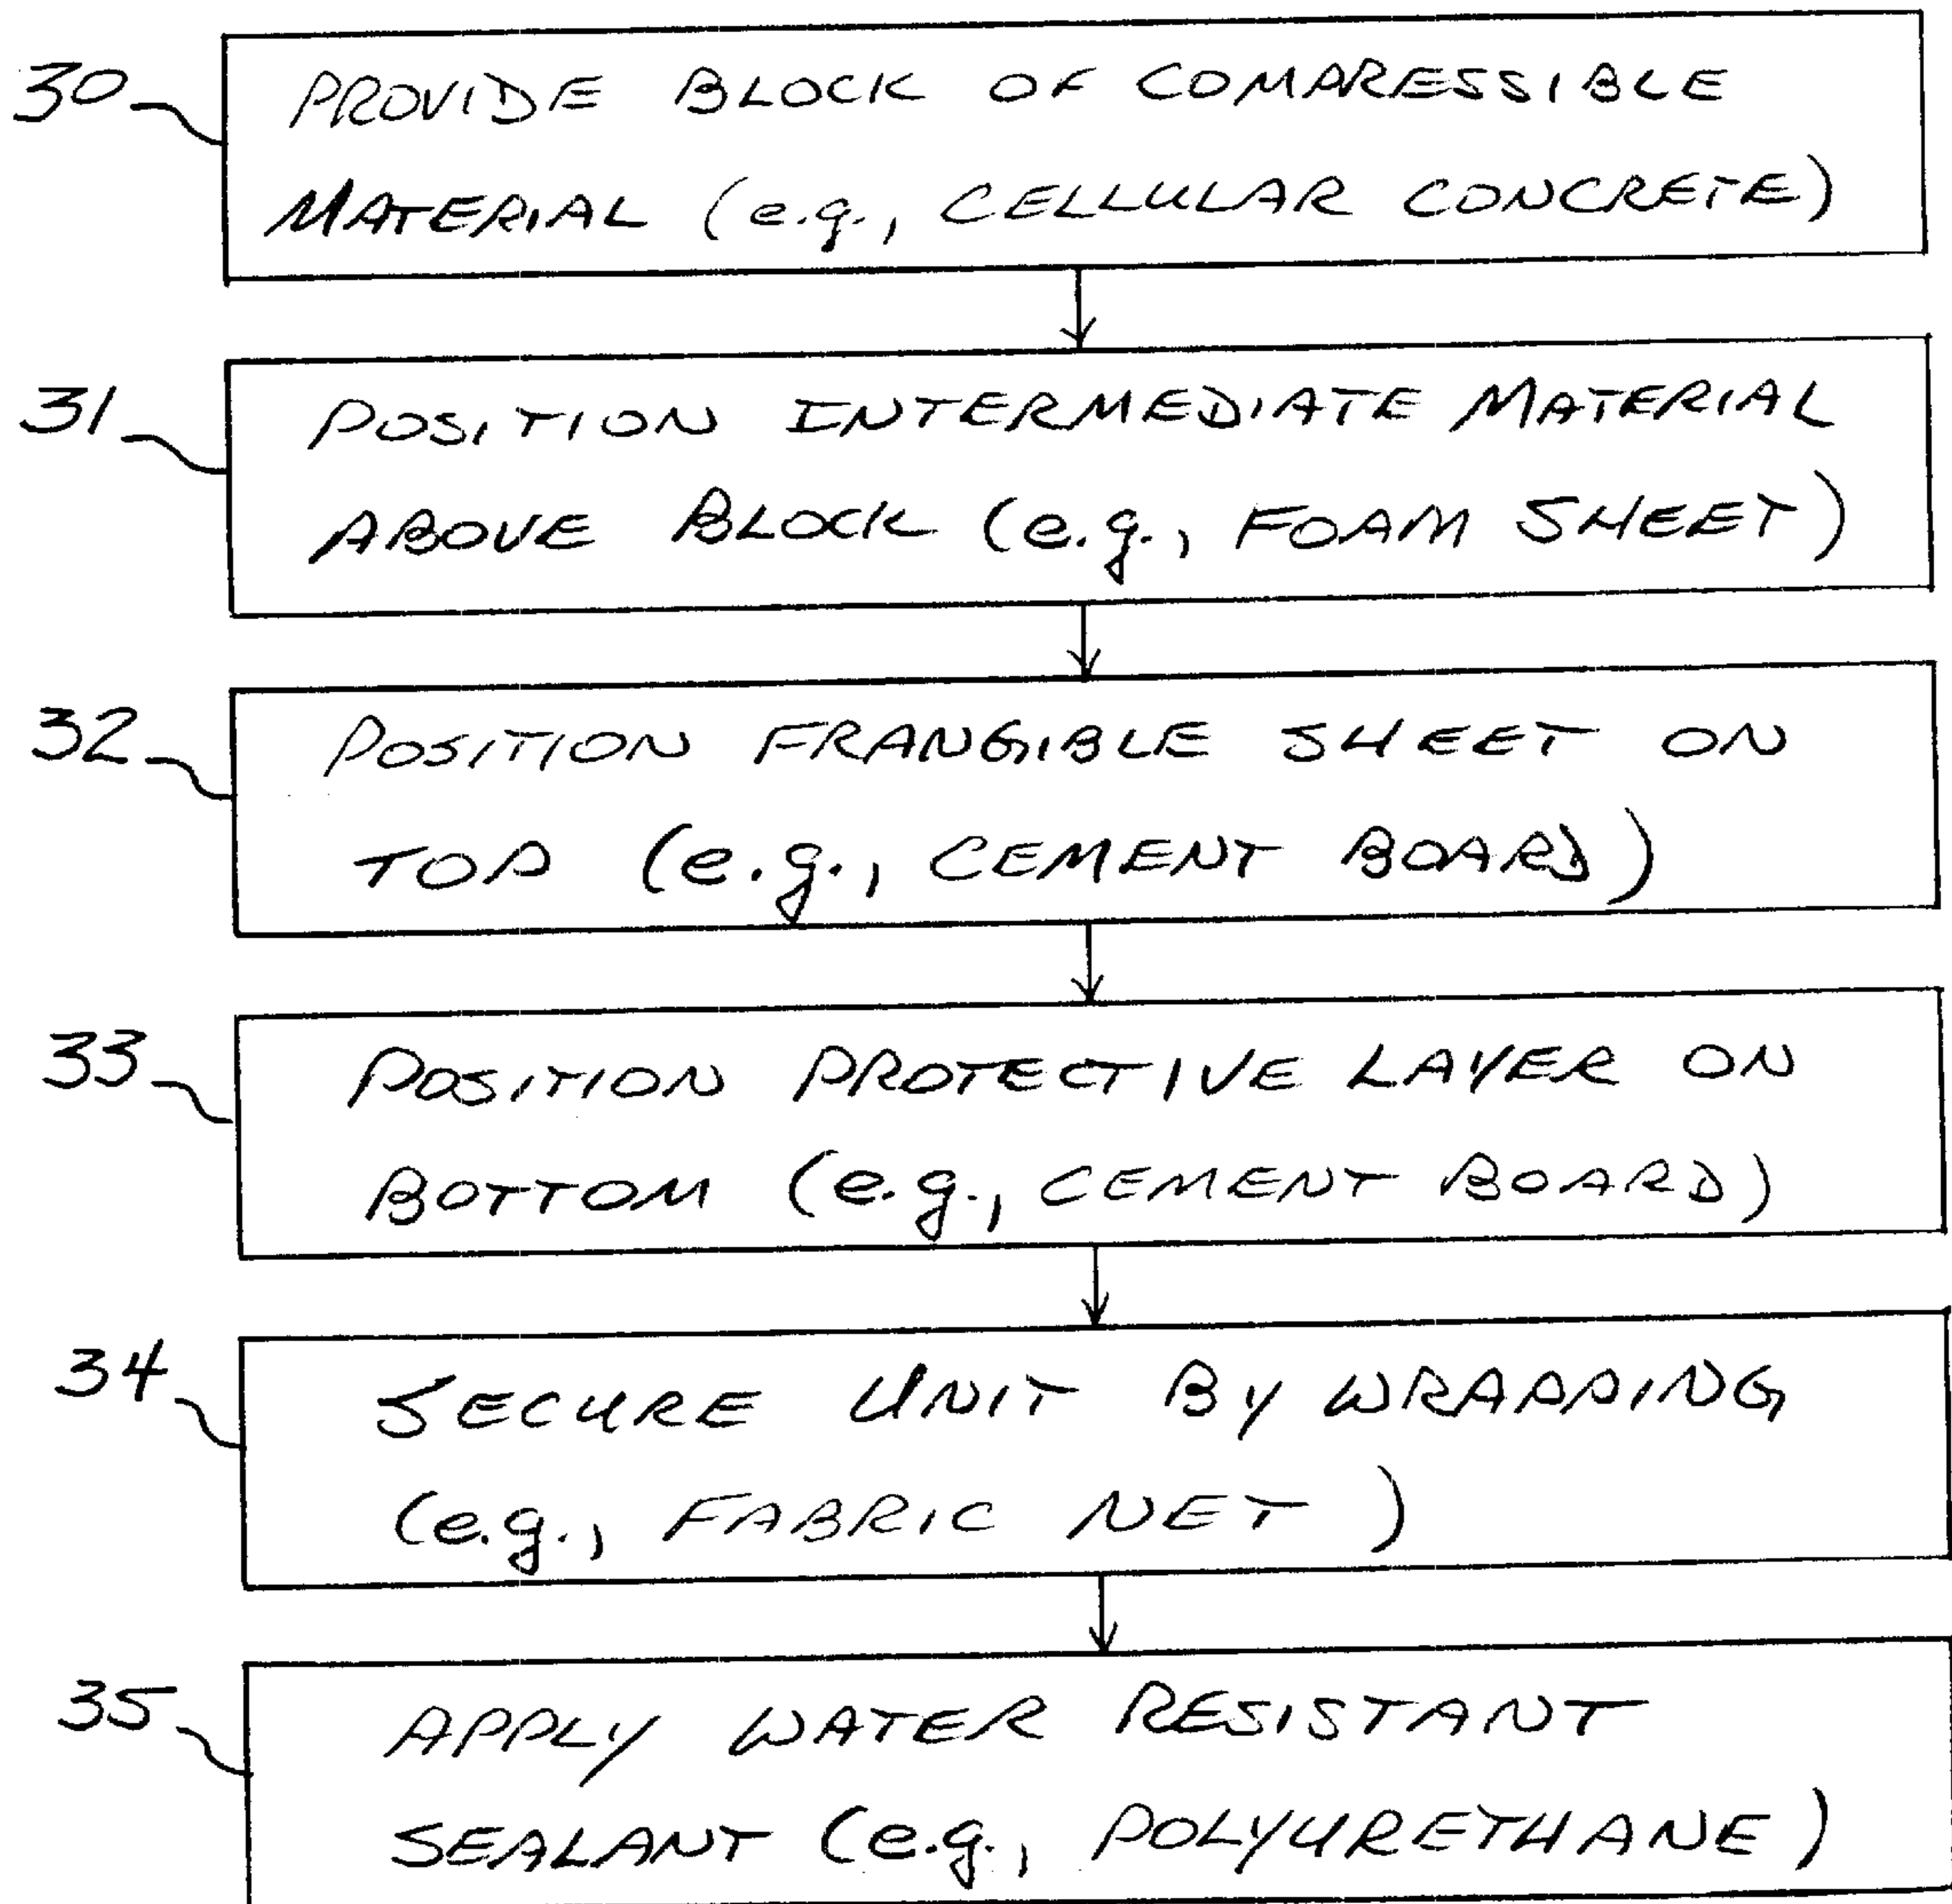 30 PROVIDE BLOCK OF COMPRESSIBLE
MATERIAL (e.g., CELLULAR CONCRETE)
31 POSITION INTERMEDIATE MATERIAL
ABOVE BLOCK (e.g., FOAM SHEET)
32 POSITION FRANGIBLE SHEET ON
TOP (e.g., CEMENT BOARD)
33 POSITION PROTECTIVE LAYER ON
BOTTOM (e.g., CEMENT BOARD)
34 SECURE UNIT BY WRAPPING
(e.g., FABRIC NET)
35 APPLY WATER RESISTANT
SEALANT (e.g., POLYURETHANE)